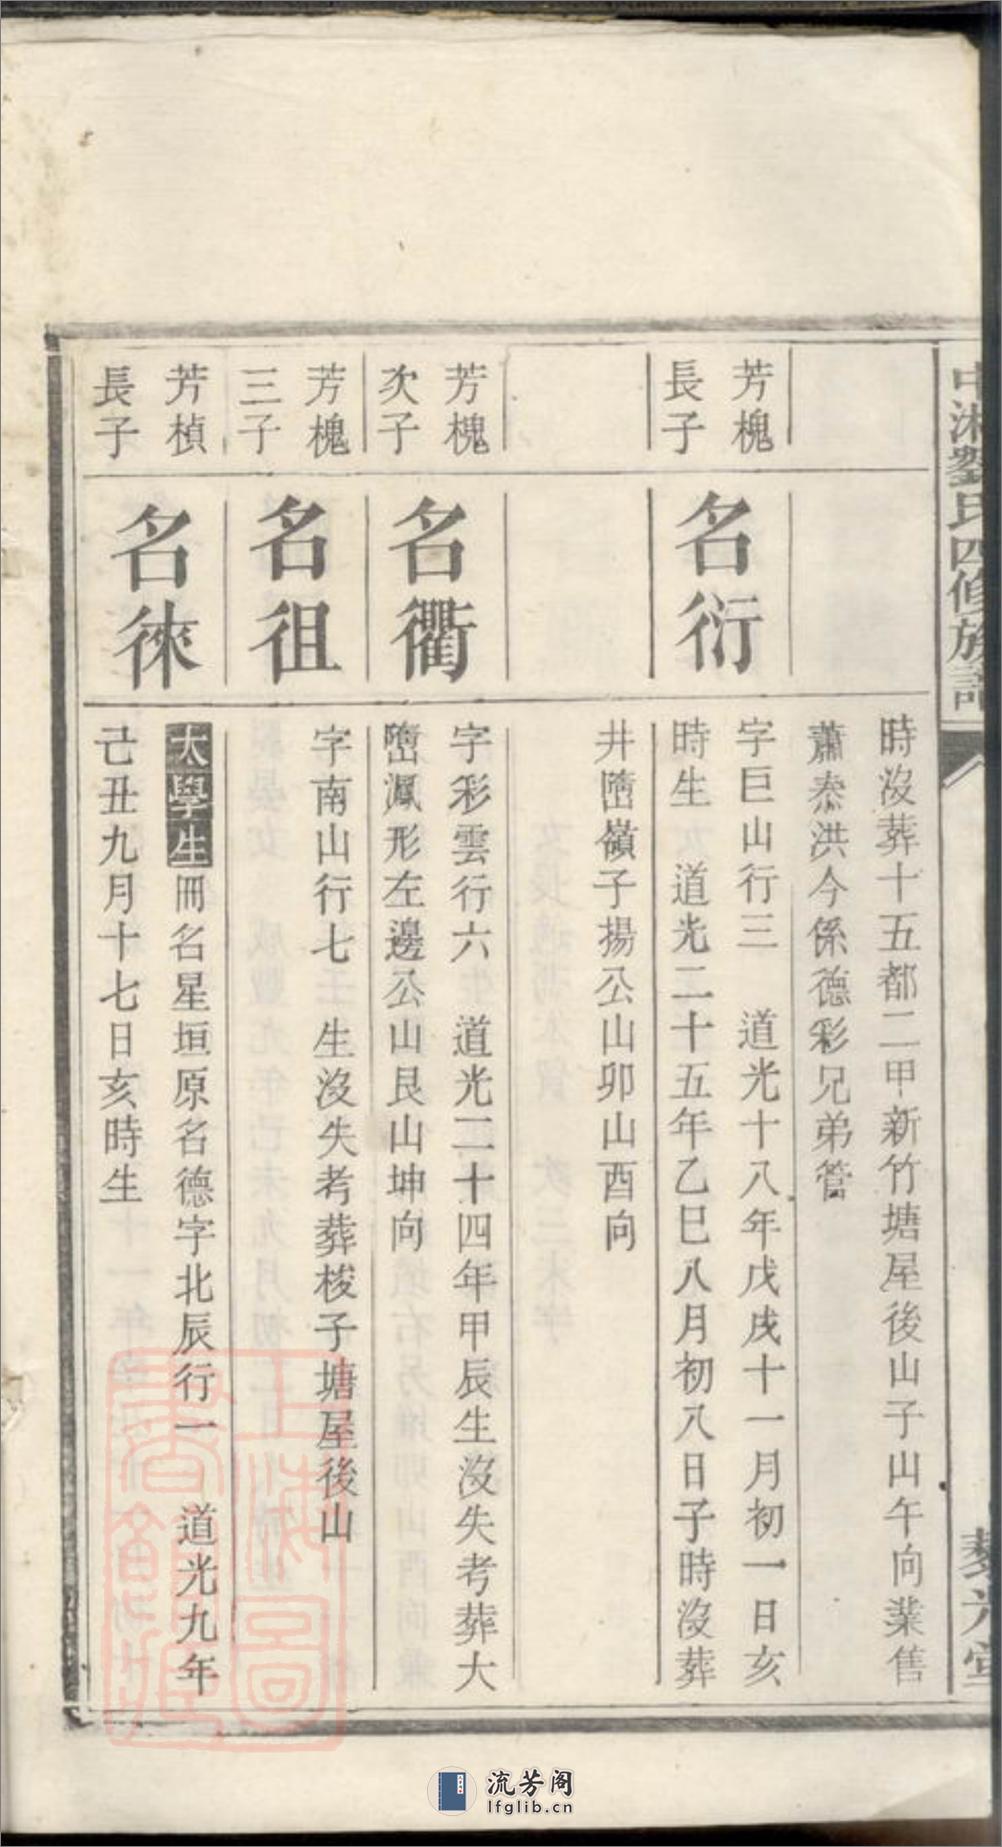 中湘劉氏四修族譜
時沒葬十五都二甲新竹塘屋後山子山午向業售
蕭泰洪今係德彩兄弟管
芳槐
長子
名衍
字巨山行三 道光十八年戊戌十一月初一日亥
時生 道光二十五年乙巳八月初八日子時沒葬
井墈嶺子揚公山卯山酉向
芳槐
次子
名衢
字彩雲行六 道光二十四年甲辰生沒失考葬大
形左邊公山艮山坤向
芳槐
三子
名徂
字南山行七 生沒失考葬梭子塘屋後山
芳楨
長子
名徠
太學生冊名星垣原名德字北辰行一 道光九年
己丑九月十七日亥時生
上海圖書館藏
流芳阁
lfglib.cn